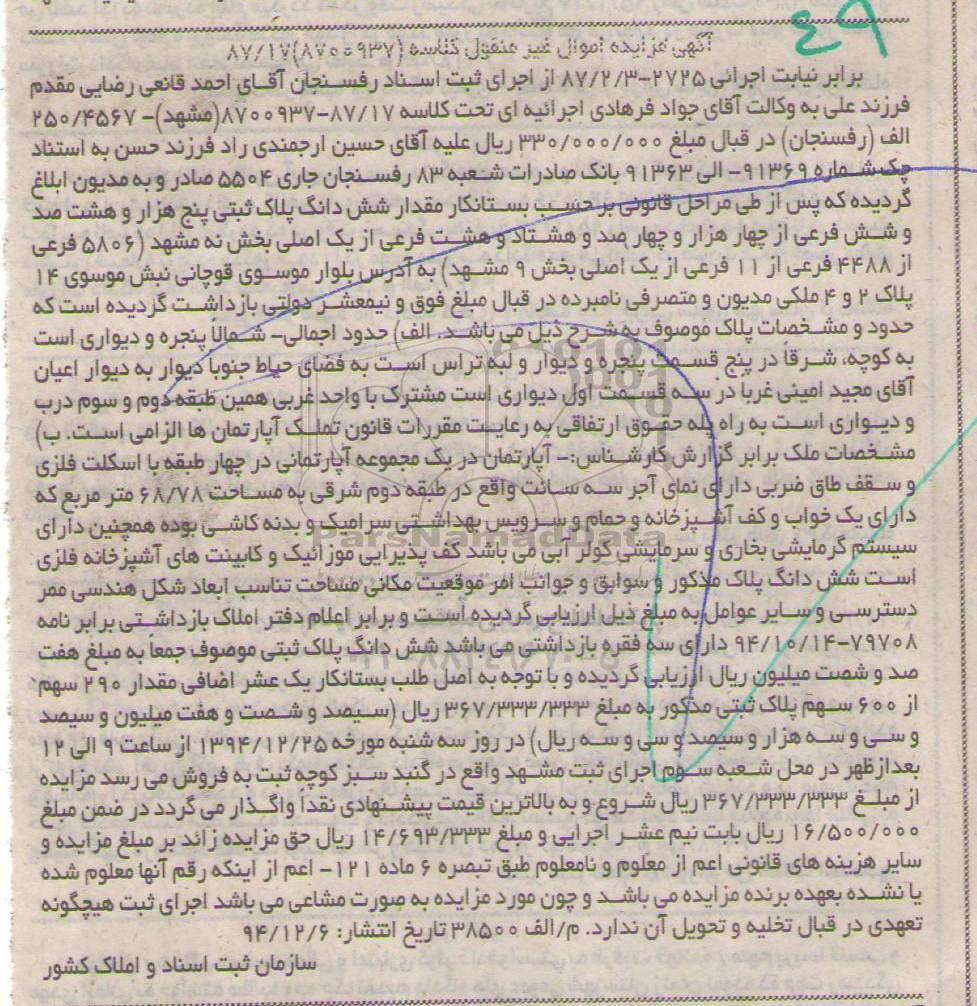 ۴۹
آگهی مزایده اموال غیر منقول کلاسه (۸۷۰۰۹۳۷) ۸۷/۱۷
برابر نیابت اجرائی ۲۷۲۵-۸۷/۲/۳ از اجرای ثبت اسناد رفسنجان آقای احمد قانعی رضایی مقدم
فرزند علی به وکالت آقای جواد فرهادی اجرائیه ای تحت کلاسه ۸۷/۱۷-۸۷۰۰۹۳۷(مشهد)- ۲۵۰/۴۵۶۷
الف (رفسنجان) در قبال مبلغ ۳۳۰/۰۰۰/۰۰۰ ریال علیه آقای حسین ارجمندی راد فرزند حسن به استناد
چک شماره ۹۱۳۶۹- الی ۹۱۳۶۳ بانک صادرات شعبه ۸۳ رفسنجان جاری ۵۵۰۴ صادر و به مدیون ابلاغ
گردیده که پس از طی مراحل قانونی بر حسب بستانکار مقدار شش دانگ پلاک ثبتی پنج هزار و هشت صد
و شش فرعی از چهار هزار و چهار صد و هشتاد و هشت فرعی از یک اصلی بخش نه مشهد (۵۸۰۶ فرعی
از ۴۴۸۸ فرعی از ۱۱ فرعی از یک اصلی بخش ۹ مشهد) به آدرس بلوار موسوی قوچانی نبش موسوی ۱۴
پلاک ۲ و ۴ ملکی مدیون و متصرفی نامبرده در قبال مبلغ فوق و نیمعشر دولتی بازداشت گردیده است که
حدود و مشخصات پلاک موصوف به شرح ذیل می باشد. الف) حدود اجمالی- شمالاً پنجره و دیواری است
به کوچه، شرقاً در پنج قسمت پنجره و دیوار و لبه تراس است به فضای حیاط جنوبا دیوار به دیوار اعیان
آقای مجید امینی غربا در سه قسمت اول دیواری است مشترک با واحد غربی همین طبقه دوم و سوم درب
و دیواری است به راه پله حقوق ارتفاقی به رعایت مقررات قانون تملک آپارتمان ها الزامی است. ب)
مشخصات ملک برابر گزارش کارشناس:- آپارتمان در یک مجموعه آپارتمانی در چهار طبقه با اسکلت فلزی
و سقف طاق ضربی دارای نمای آجر سه سانت واقع در طبقه دوم شرقی به مساحت ۶۸/۷۸ متر مربع که
دارای یک خواب و کف آشپزخانه و حمام و سرویس بهداشتی سرامیک و بدنه کاشی بوده همچنین دارای
سیستم گرمایشی بخاری و سرمایشی کولر آبی می باشد کف پذیرایی موزائیک و کابینت های آشپزخانه فلزی
است شش دانگ پلاک مذکور و سوابق و جوانب امر موقعیت مکانی مساحت تناسب ابعاد شکل هندسی ممر
دسترسی و سایر عوامل به مبلغ ذیل ارزیابی گردیده است و برابر اعلام دفتر املاک بازداشتی برابر نامه
۷۹۷۰۸-۹۴/۱۰/۱۴ دارای سه فقره بازداشتی می باشد شش دانگ پلاک ثبتی موصوف جمعاً به مبلغ هفت
صد و شصت میلیون ریال ارزیابی گردیده و با توجه به اصل طلب بستانکار یک عشر اضافی مقدار ۲۹۰ سهم
از ۶۰۰ سهم پلاک ثبتی مذکور به مبلغ ۳۶۷/۳۳۳/۳۳۳ ریال (سیصد و شصت و هفت میلیون و سیصد
و سی و سه هزار و سیصد و سی و سه ریال) در روز سه شنبه مورخه ۱۳۹۴/۱۲/۲۵ از ساعت ۹ الی ۱۲
بعدازظهر در محل شعبه سوم اجرای ثبت مشهد واقع در گنبد سبز کوچه ثبت به فروش می رسد مزایده
از مبلغ ۳۶۷/۳۳۳/۳۳۳ ریال شروع و به بالاترین قیمت پیشنهادی نقداً واگذار می گردد در ضمن مبلغ
۱۶/۵۰۰/۰۰۰ ریال بابت نیم عشر اجرایی و مبلغ ۱۴/۶۹۳/۳۳۳ ریال حق مزایده زائد بر مبلغ مزایده و
سایر هزینه های قانونی اعم از معلوم و نامعلوم طبق تبصره ۶ ماده ۱۲۱- اعم از اینکه رقم آنها معلوم شده
یا نشده بعهده برنده مزایده می باشد و چون مورد مزایده به صورت مشاعی می باشد اجرای ثبت هیچگونه
تعهدی در قبال تخلیه و تحویل آن ندارد. م/الف ۳۸۵۰۰ تاریخ انتشار: ۹۴/۱۲/۶
سازمان ثبت اسناد و املاک کشور
ParsNamadData